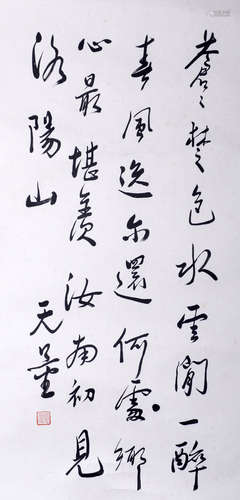 蒼々楚色水雲間一醉
春風送尔還何處鄉
心最堪羡汝南初見
洛陽山
天量